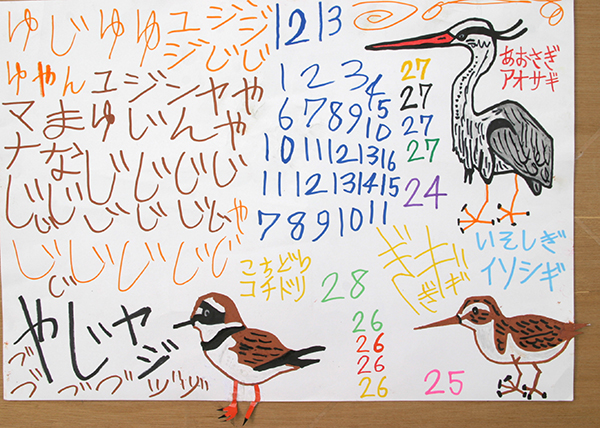 ゆじゅゆユジジ
ジじじ
ゆやんユジンヤや
マまゆじんや
ナなじじじじ
じじじじじじや
じじじじじ
じ
やじヤジ
づづづづづヅヅ
1213
1 2 3 4
6 7 8 9 5
10
10 11 12 13 16
11 12 13 14 15
7 8 9 10 11
27
27
27
27
24
あおさぎ
アオサギ
こちどり
コチドリ
28
26
26
26
26
ぎギ
ぎぎ
いそしぎ
イソシギ
25